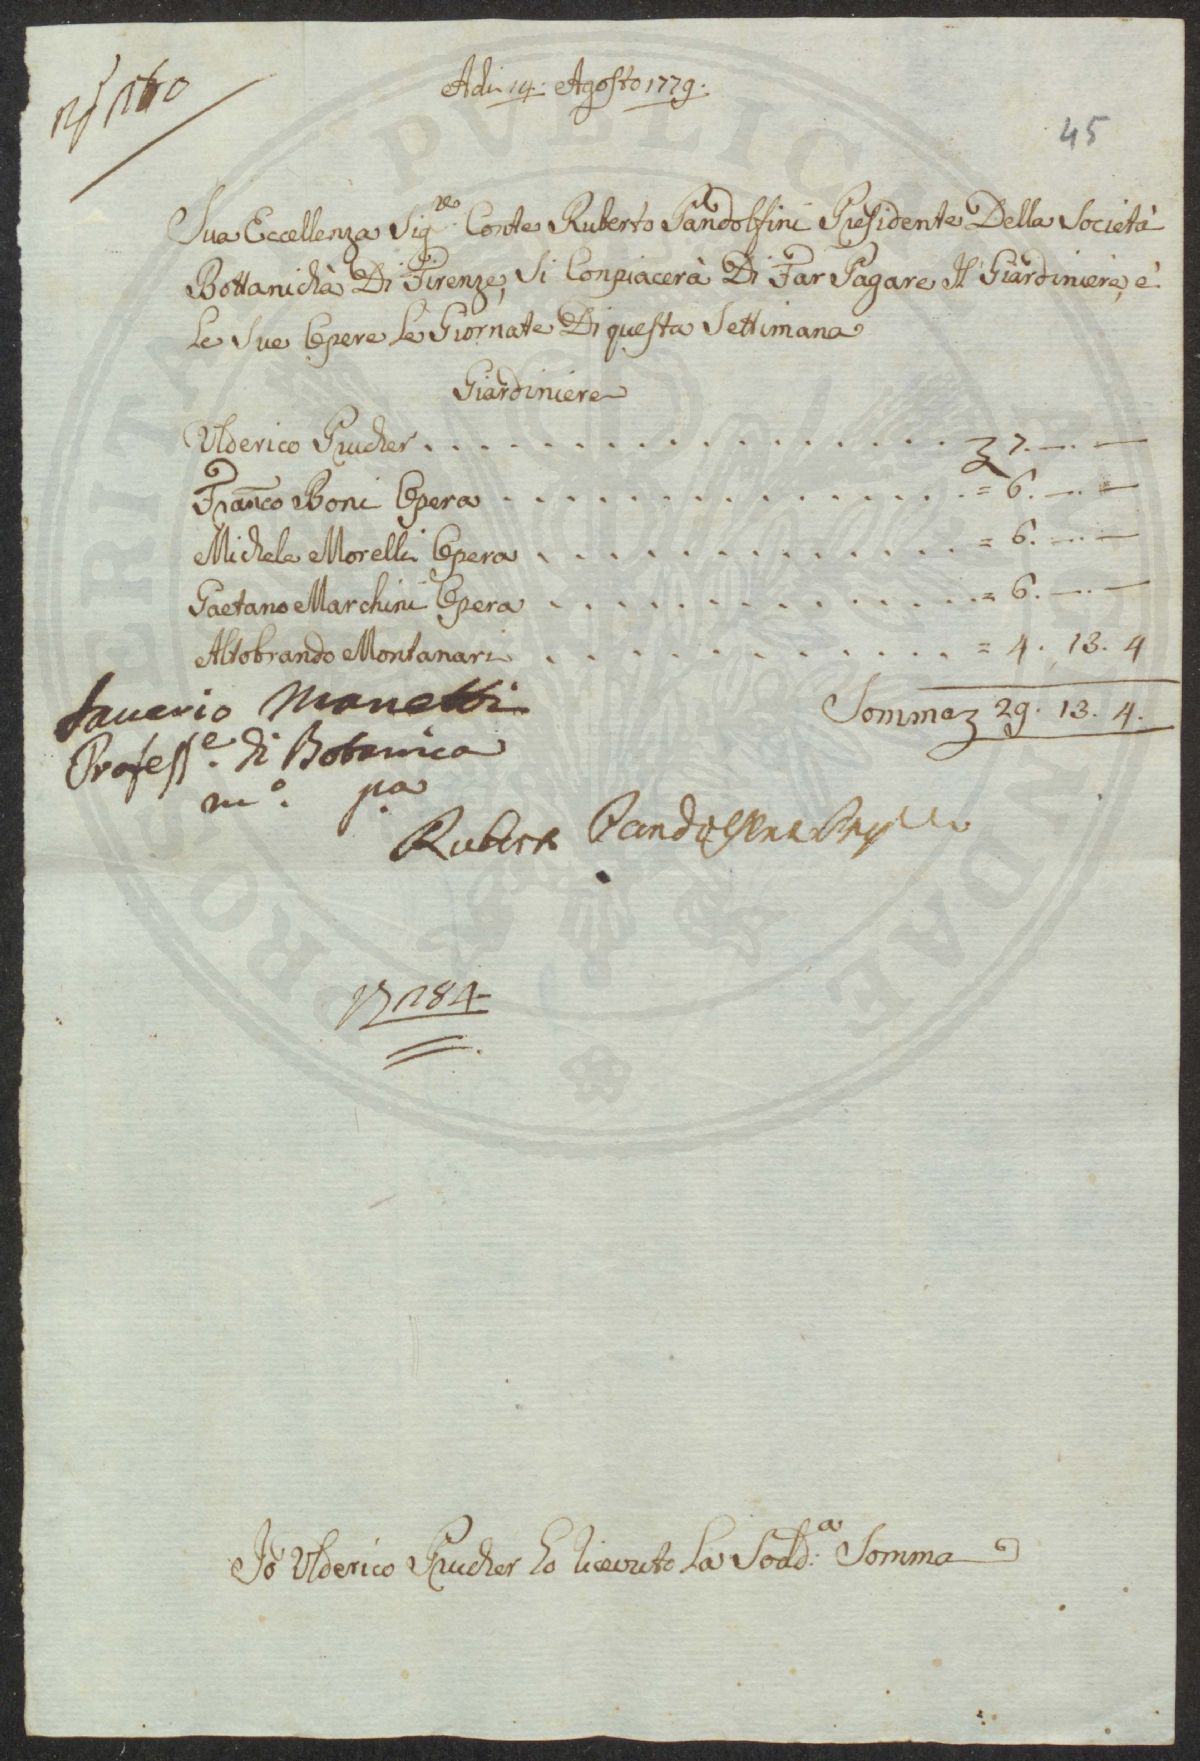 Nº 160
Adi 14: Agosto 1779.
45
Sua Eccellenza Sig.re Conte Ruberto Pandolfini Presidente Della Società
Bottanicha Di Firenze, Si Conpiacerà Di Far Pagare Il Giardiniere, è
Le Sue Opere Le Giornate Di questa Settimana
Giardiniere
Ulderico Prucher . . . . . . . . . . . . . . . 7. — . —
Franco Boni Opera . . . . . . . . . . . . . . = 6. — . —
Michele Morelli Opera . . . . . . . . . . . . . = 6. — . —
Gaetano Marchini Opera . . . . . . . . . . . . . = 6. — . —
Altobrando Montanari . . . . . . . . . . . . = 4. 13. 4
Somma 29. 13. 4.
Saverio Manetti
Profess.e di Botanica
m.o pa
Ruberto Pandolfini
184
Io Ulderico Prucher ho ricevuto La Sodd.a Somma
PRO ERITATE PVBLICA